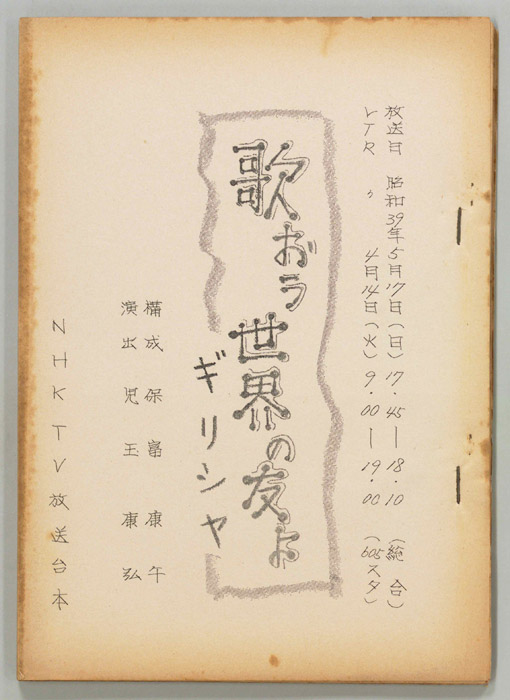 放送日 昭和39年5月17日(日)17.45—18.10(総合)
VTR 〃 4月14日(火)9.00—19.00(605スタ)
歌おう世界の友よ
ギリシャ
構成 保富康午
演出 児玉康弘
NHKTV放送台本